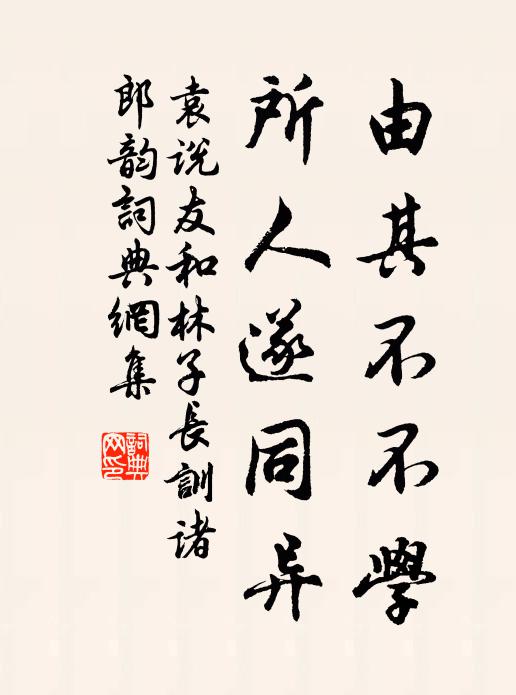 由其不不學
所人遂同异
袁说友和林子長訓诸
郎韵詞典網集
詞典網印